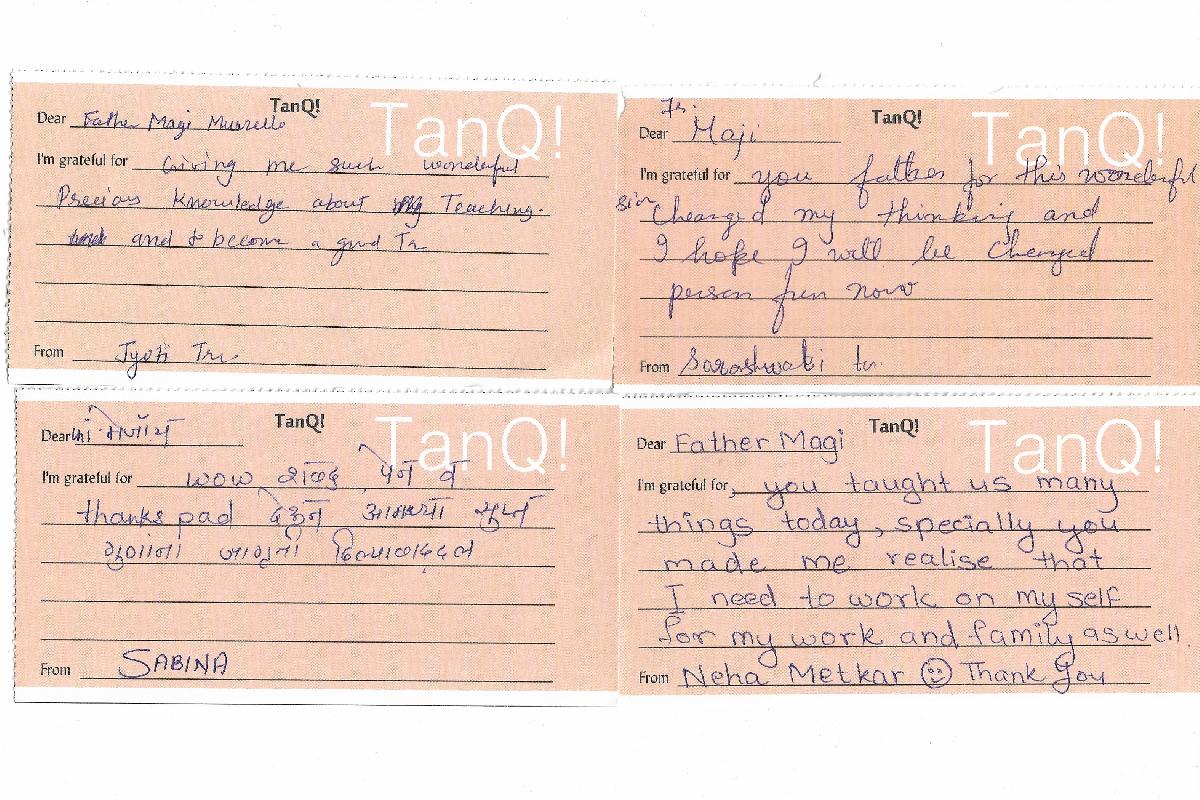 TanQ!
TanQ!
Dear Father Magi Murzello
I'm grateful for Giving me such wonderful
Precious Knowledge about Teaching.
and to become a good Tr
From Jyoti Tr.
TanQ!
TanQ!
Fr.
Dear Maji
I'm grateful for you father for this wonderful
sion
Changed my thinking and
I hope I will be Changed
person frm now
From Sarashwati tr.
TanQ!
TanQ!
Dear फा. मॅजॉय
I'm grateful for wow शब्द, पेन व
thanks pad देऊन आमच्या सुप्त
गुणांना जागृती
From SABINA
TanQ!
TanQ!
Dear Father Magi
I'm grateful for, you taught us many
things today, specially you
made me realise that
I need to work on my self
for my work and family as well
From Neha Metkar ☺ Thank You